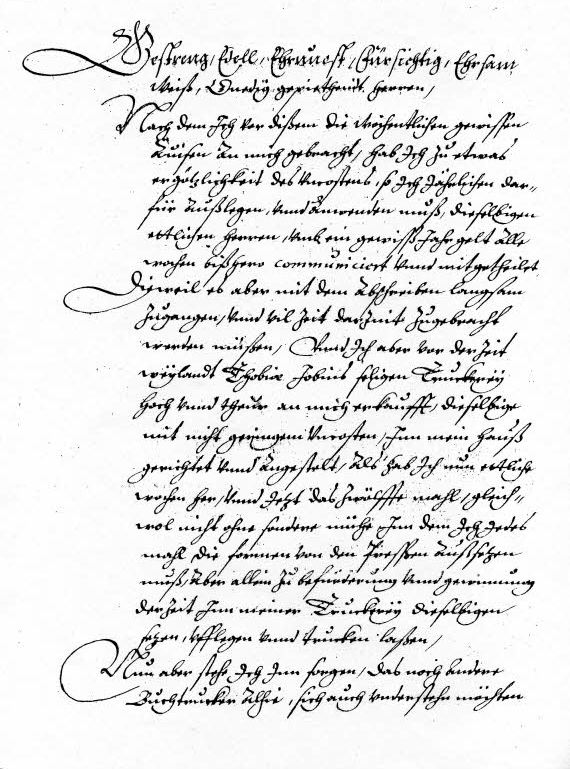 Gestreng, Edell, Ehrnuest, Fürsichtig, Ehrsam,
Weiß, Gnedig gepiethendt herren,
Nach dem Ich vor dißem die wöchentlichen gewissen
Auisen An mich gebracht, hab Ich zu etwas
ergötzlichkeit des Vncostens, so Ich Jährlichen dar-
für Außlegen, vnnd Anwenden muß, dieselbigen
ettlichen herren, vmb ein gewiss Jahrgelt Alle
wochen bißhero communiciert vnnd mitgetheilet.
Dieweil es aber mit dem Abschreiben langsam
zugangen, vnnd vil Zeit darmit zugebracht
werden müßen, Vnnd Ich aber vor der Zeit
weylandt Thobiæ Jobins seligen Truckerey
hoch vnnd theur an mich erkaufft, dieselbige
mit nicht geringem Vncosten, Inn mein hauß
gerichtet vnnd Angestelt, Als hab Ich nun ettliche
wochen her, Vnnd Jetzt das zwölffte mahl, gleich-
wol nicht ohne sondere mühe Inn dem Ich Jedes
mahl die formen von den Pressen Außsetzen
muß, Aber allein zu befürderung vnnd gewinnung
der Zeit Inn meiner Truckerey dieselbigen
setzen, vfflegen vnnd trucken laßen,
Nun aber stehe Ich Inn sorgen, das noch Andere
Buchtrucker Alhie, sich auch vnderstehn möchten